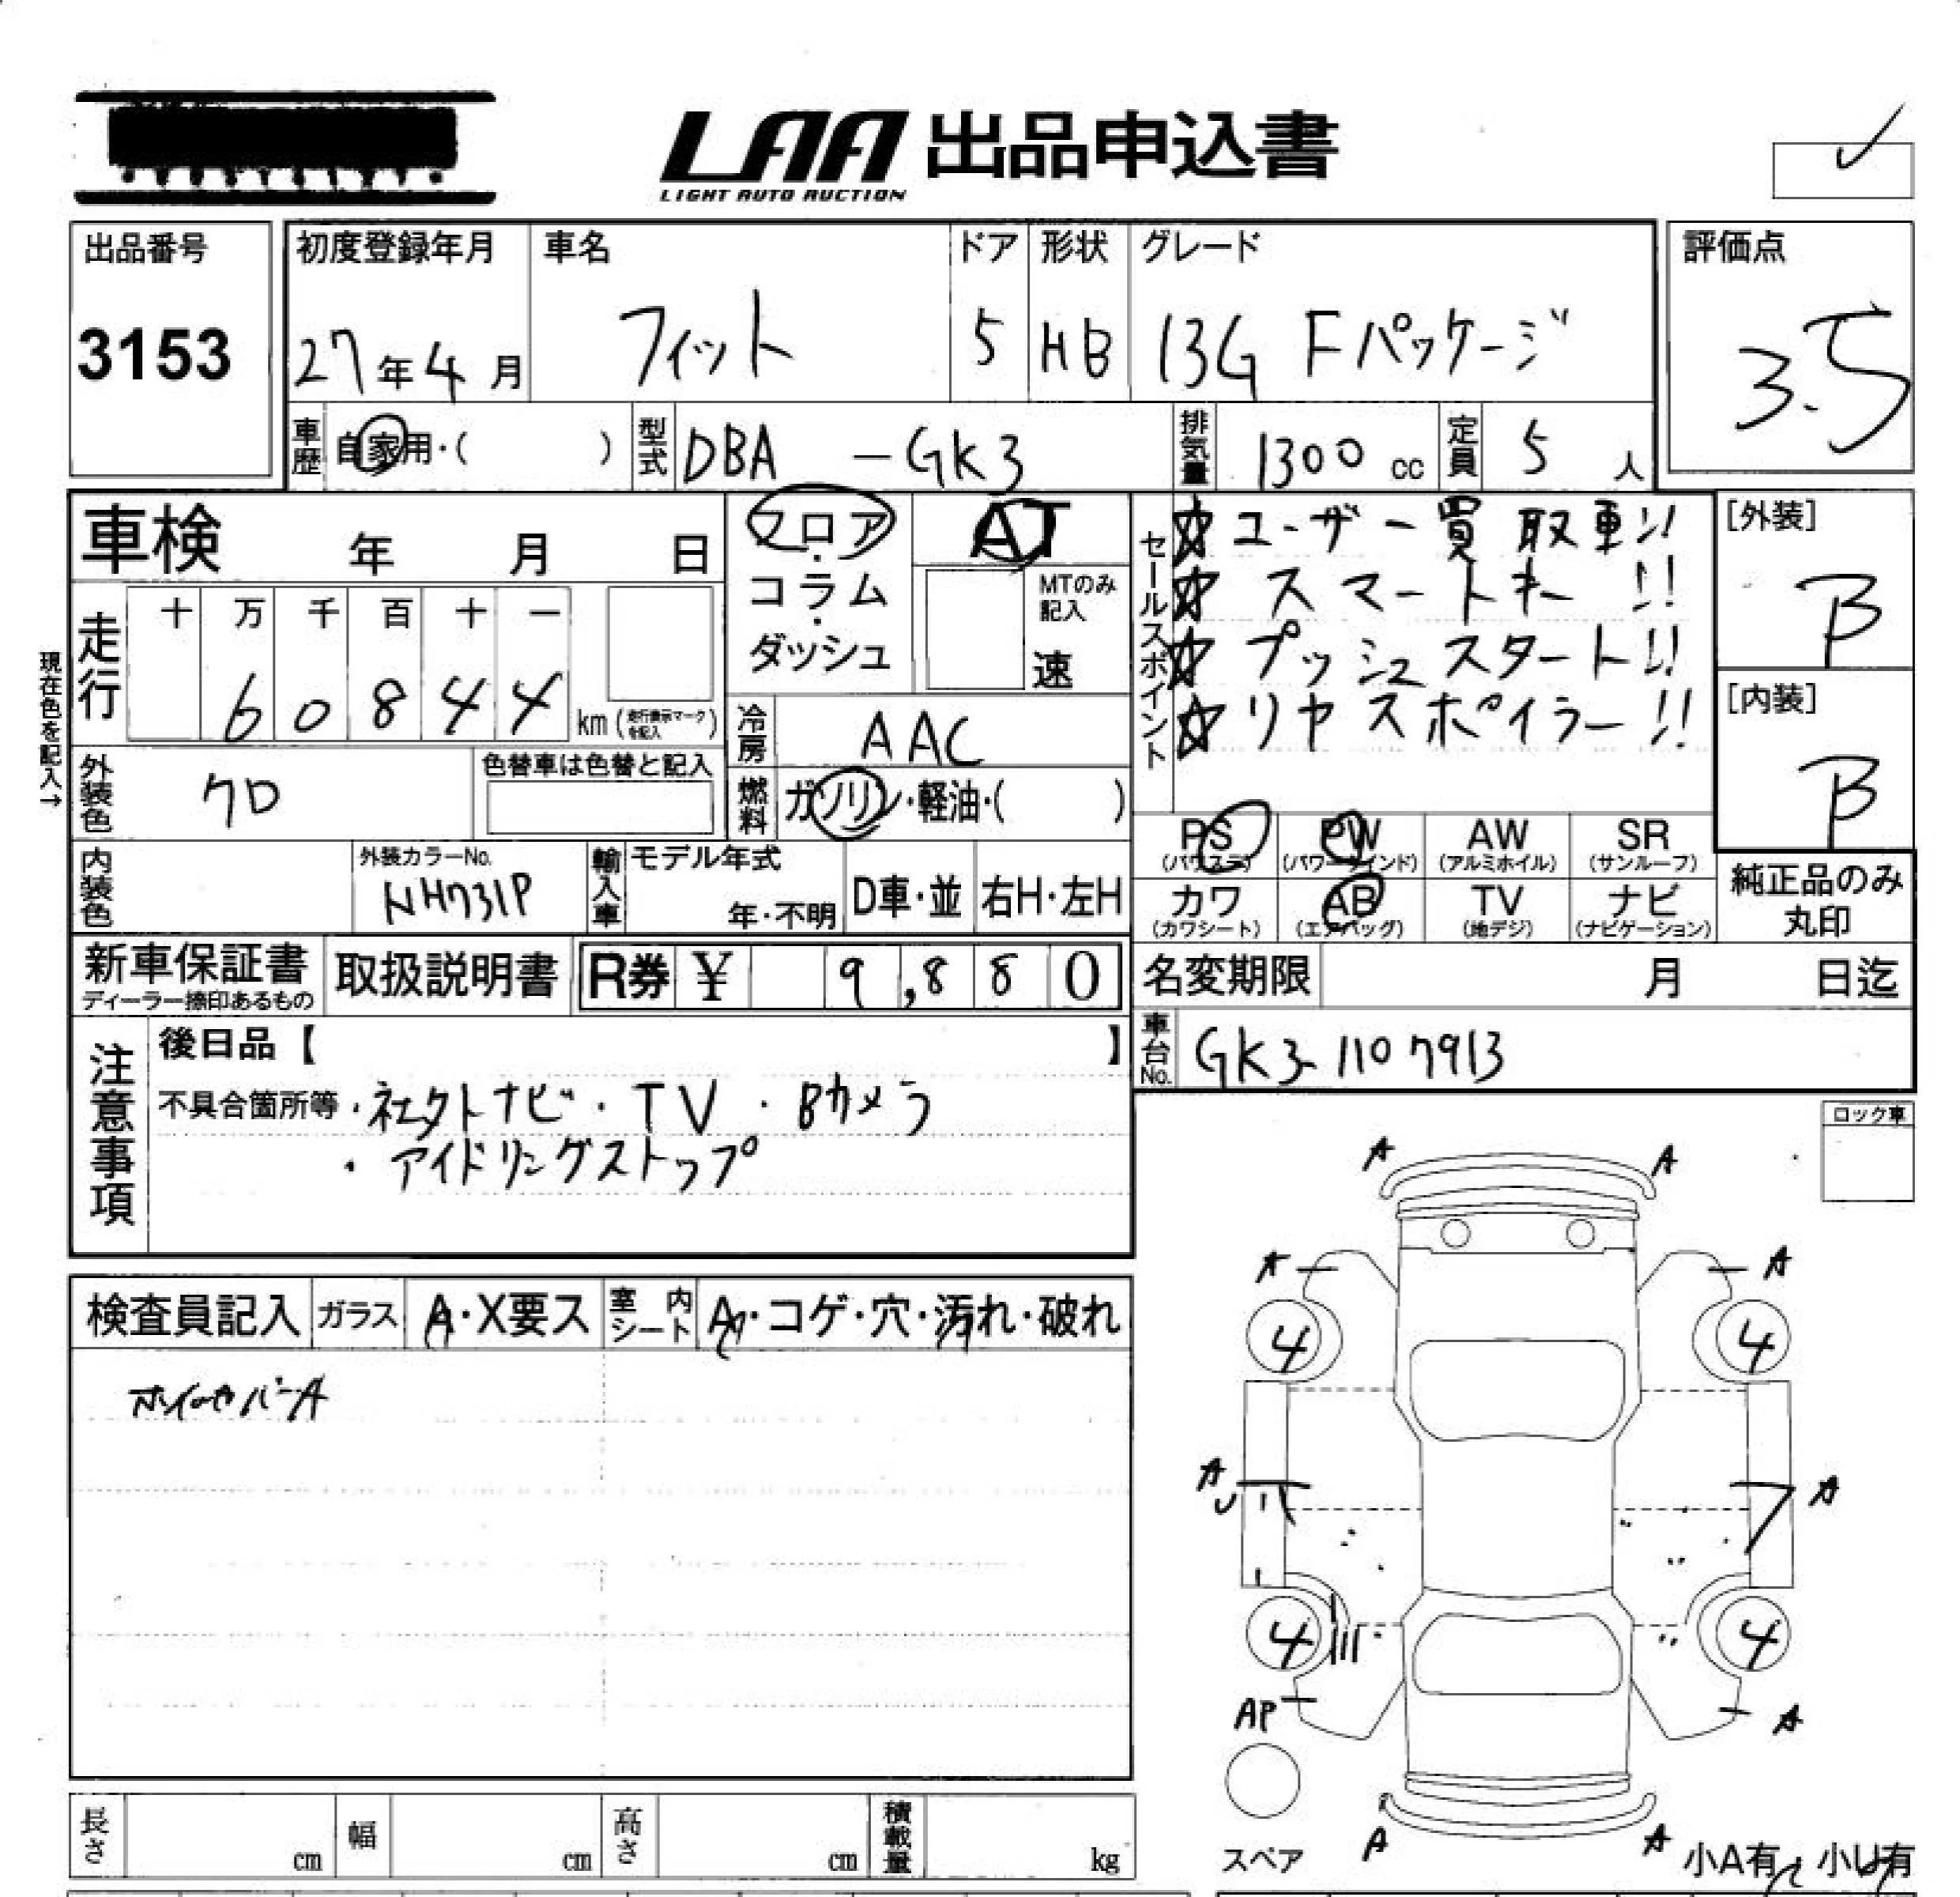 LAA 出品申込書
LIGHT AUTO AUCTION
出品番号
3153
初度登録年月
27年4月
車名
フィット
ドア
5
形状
HB
グレード
13G Fパッケージ
評価点
3.5
車歴
自家用・( )
型式
DBA -GK3
排気量
1300 cc
定員
5 人
車検 年 月 日
フロア
・
コラム
・
ダッシュ
AT
MTのみ
記入
速
セールスポイント
☆ユーザー買取車!!
☆スマートキー!!
☆プッシュスタート!!
☆リヤスポイラー!!
[外装]
B
[内装]
B
現在色を記入→
走行
十 万 千 百 十 一
6 0 8 4 4
km(走行表示マークを記入)
冷房
AAC
燃料
ガソリン・軽油・( )
外装色
クロ
色替車は色替と記入
内装色
外装カラーNo.
NH731P
輸入車
モデル年式
年・不明
D車・並
右H・左H
PS
(パワステ)
PW
(パワーウインド)
AW
(アルミホイル)
SR
(サンルーフ)
カワ
(カワシート)
AB
(エアバッグ)
TV
(地デジ)
ナビ
(ナビゲーション)
純正品のみ
丸印
新車保証書
ディーラー捺印あるもの
取扱説明書
R券 ¥ 9,880
名変期限 月 日迄
車台No.
GK3-1107913
注意事項
後日品【 】
不具合箇所等・社外ナビ・TV・Bカメラ
・アイドリングストップ
ロック車
検査員記入
ガラス
A・X要ス
室内シート
A・コゲ・穴・汚れ・破れ
A A
A A
4 4
A A
U
4 4
AP A
スペア
A A
小A有・小U有
長さ cm
幅 cm
高さ cm
積載量 kg